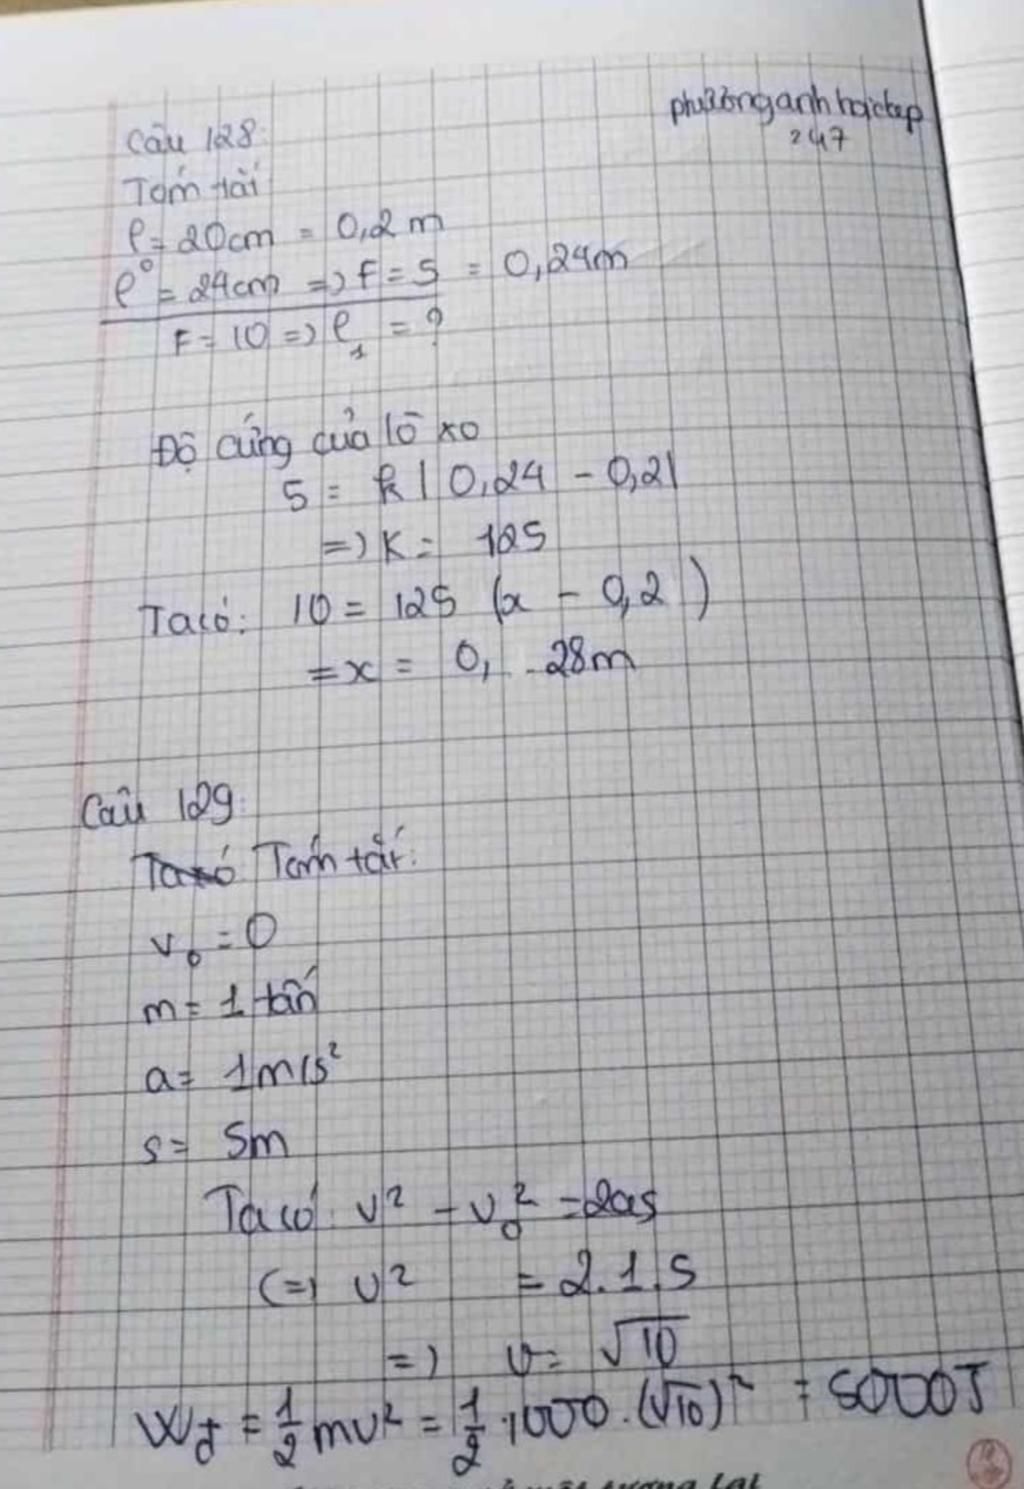 phương anh hoidap
247
Câu 128:
Tóm tắt
l = 20cm = 0,2m
l⁰ = 24cm => F = 5 = 0,24m
F = 10 => l₁ = ?
Độ cứng của lò xo
5 = k | 0,24 - 0,2|
=> K = 125
Ta có: 10 = 125 (x - 0,2)
= x = 0, 28m
Câu 129:
Tóm tắt:
v₀ = 0
m = 1 tấn
a = 1m/s²
s = 5m
Ta có: v² - v₀² = 2as
(=) v² = 2.1.5
=> v = √10
Wđ = 1/2 mv² = 1/2 .1000.(√10)² = 5000J